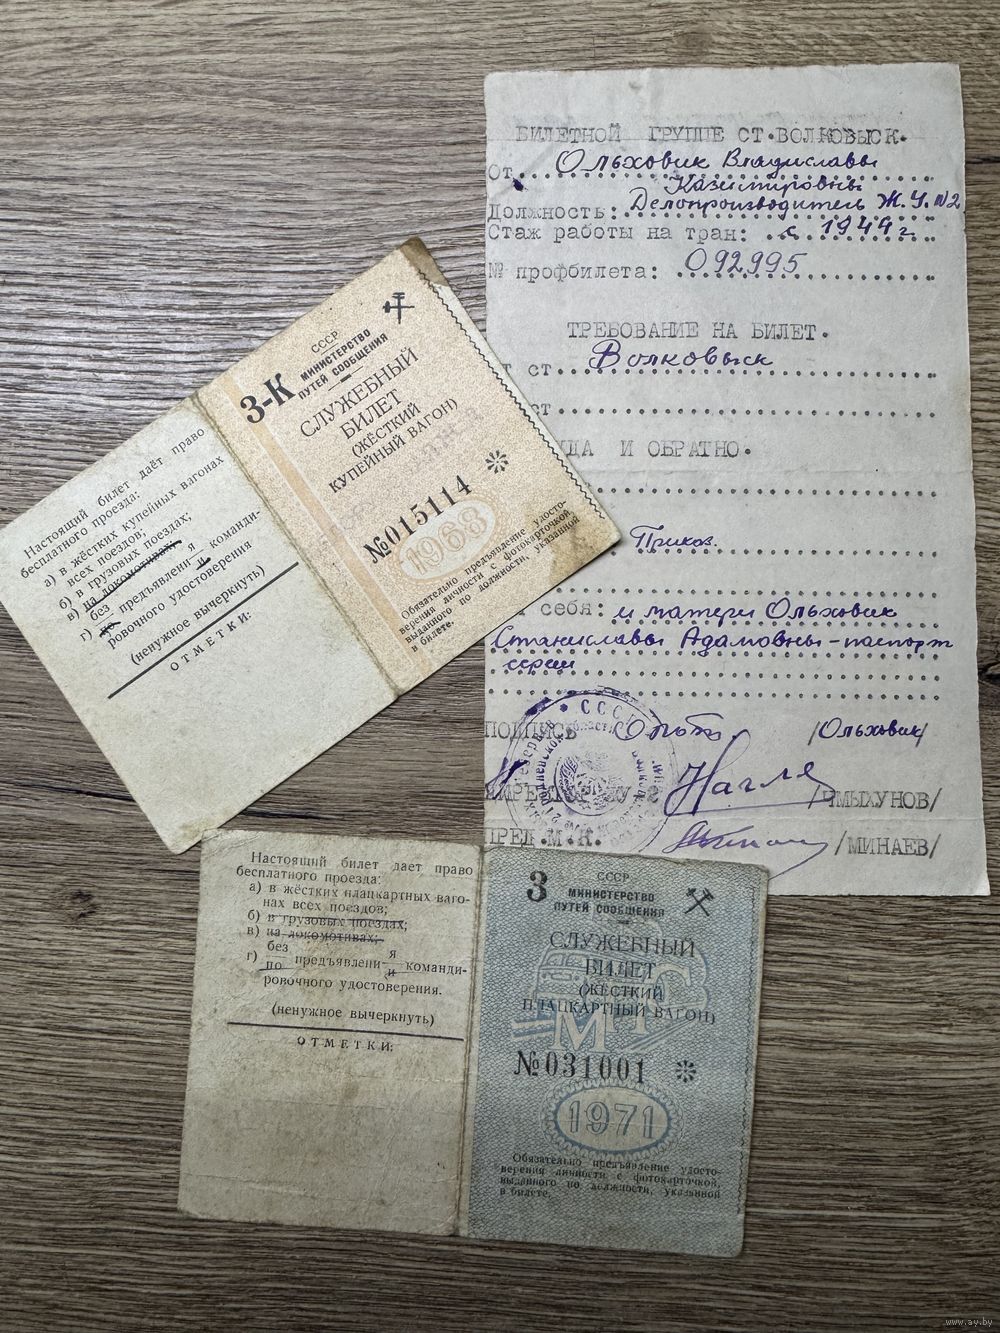 БИЛЕТНОЙ ГРУППЕ СТ.ВОЛКОВЫСК.
От Ольховик Владиславы
Казимировны
Должность: Делопроизводитель Ж.У. №2
Стаж работы на тран: с 1944 г.
№ профбилета: 092995
ТРЕБОВАНИЕ НА БИЛЕТ.
т ст Волковыск
ст
УДА И ОБРАТНО.
Приказ.
себя: и матери Ольховик
Станиславы Адамовны - паспорт
серии
ПОДПИСЬ /Ольховик/
/ЧМЫХУНОВ/
ПРЕД.М.К. /МИНАЕВ/
СССР
Настоящий билет даёт право
бесплатного проезда:
а) в жёстких купейных вагонах
всех поездов;
б) в грузовых поездах;
в) на локомотивах;
без я
г) по предъявлени- и команди-
ровочного удостоверения
(ненужное вычеркнуть)
ОТМЕТКИ:
3-К
СССР
МИНИСТЕРСТВО
ПУТЕЙ СООБЩЕНИЯ
СЛУЖЕБНЫЙ
БИЛЕТ
(ЖЁСТКИЙ
КУПЕЙНЫЙ ВАГОН)
№015114
1968
Обязательно предъявление удосто-
верения личности с фотокарточкой,
выданного по должности, указанной
в билете.
Настоящий билет дает право
бесплатного проезда:
а) в жёстких плацкартных ваго-
нах всех поездов;
б) в грузовых поездах;
в) на локомотивах;
без я
г) по предъявлени- и команди-
ровочного удостоверения.
(ненужное вычеркнуть)
ОТМЕТКИ:
3
СССР
МИНИСТЕРСТВО
ПУТЕЙ СООБЩЕНИЯ
СЛУЖЕБНЫЙ
БИЛЕТ
(ЖЁСТКИЙ
ПЛАЦКАРТНЫЙ ВАГОН)
МПС
№031001
1971
Обязательно предъявление удосто-
верения личности с фотокарточкой,
выданного по должности, указанной
в билете.
www.ay.by